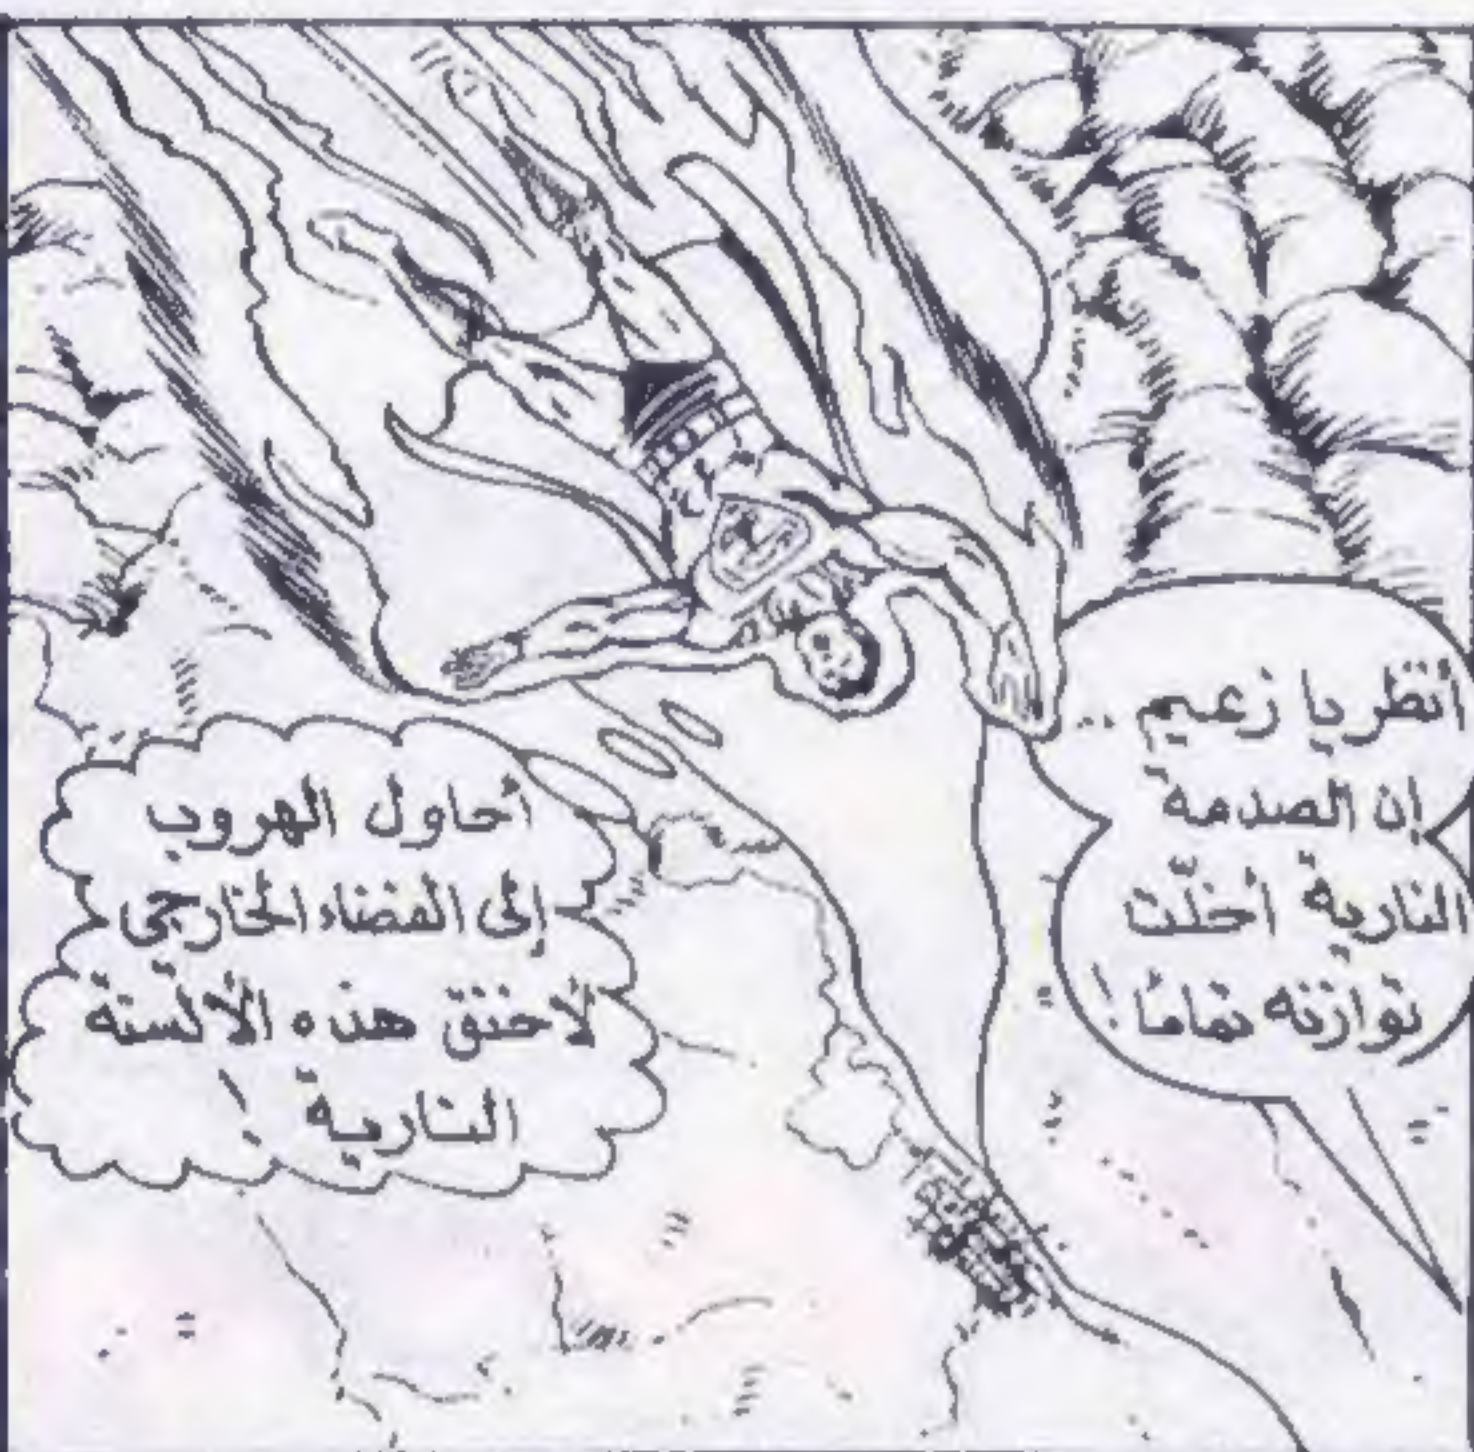 أنظر يا زعيم ..
إن الصدمة
النارية أخلّت
توازنه تمامًا !
أحاول الهروب
إلى الفضاء الخارجي
لأخنق هذه الألسنة
النارية !